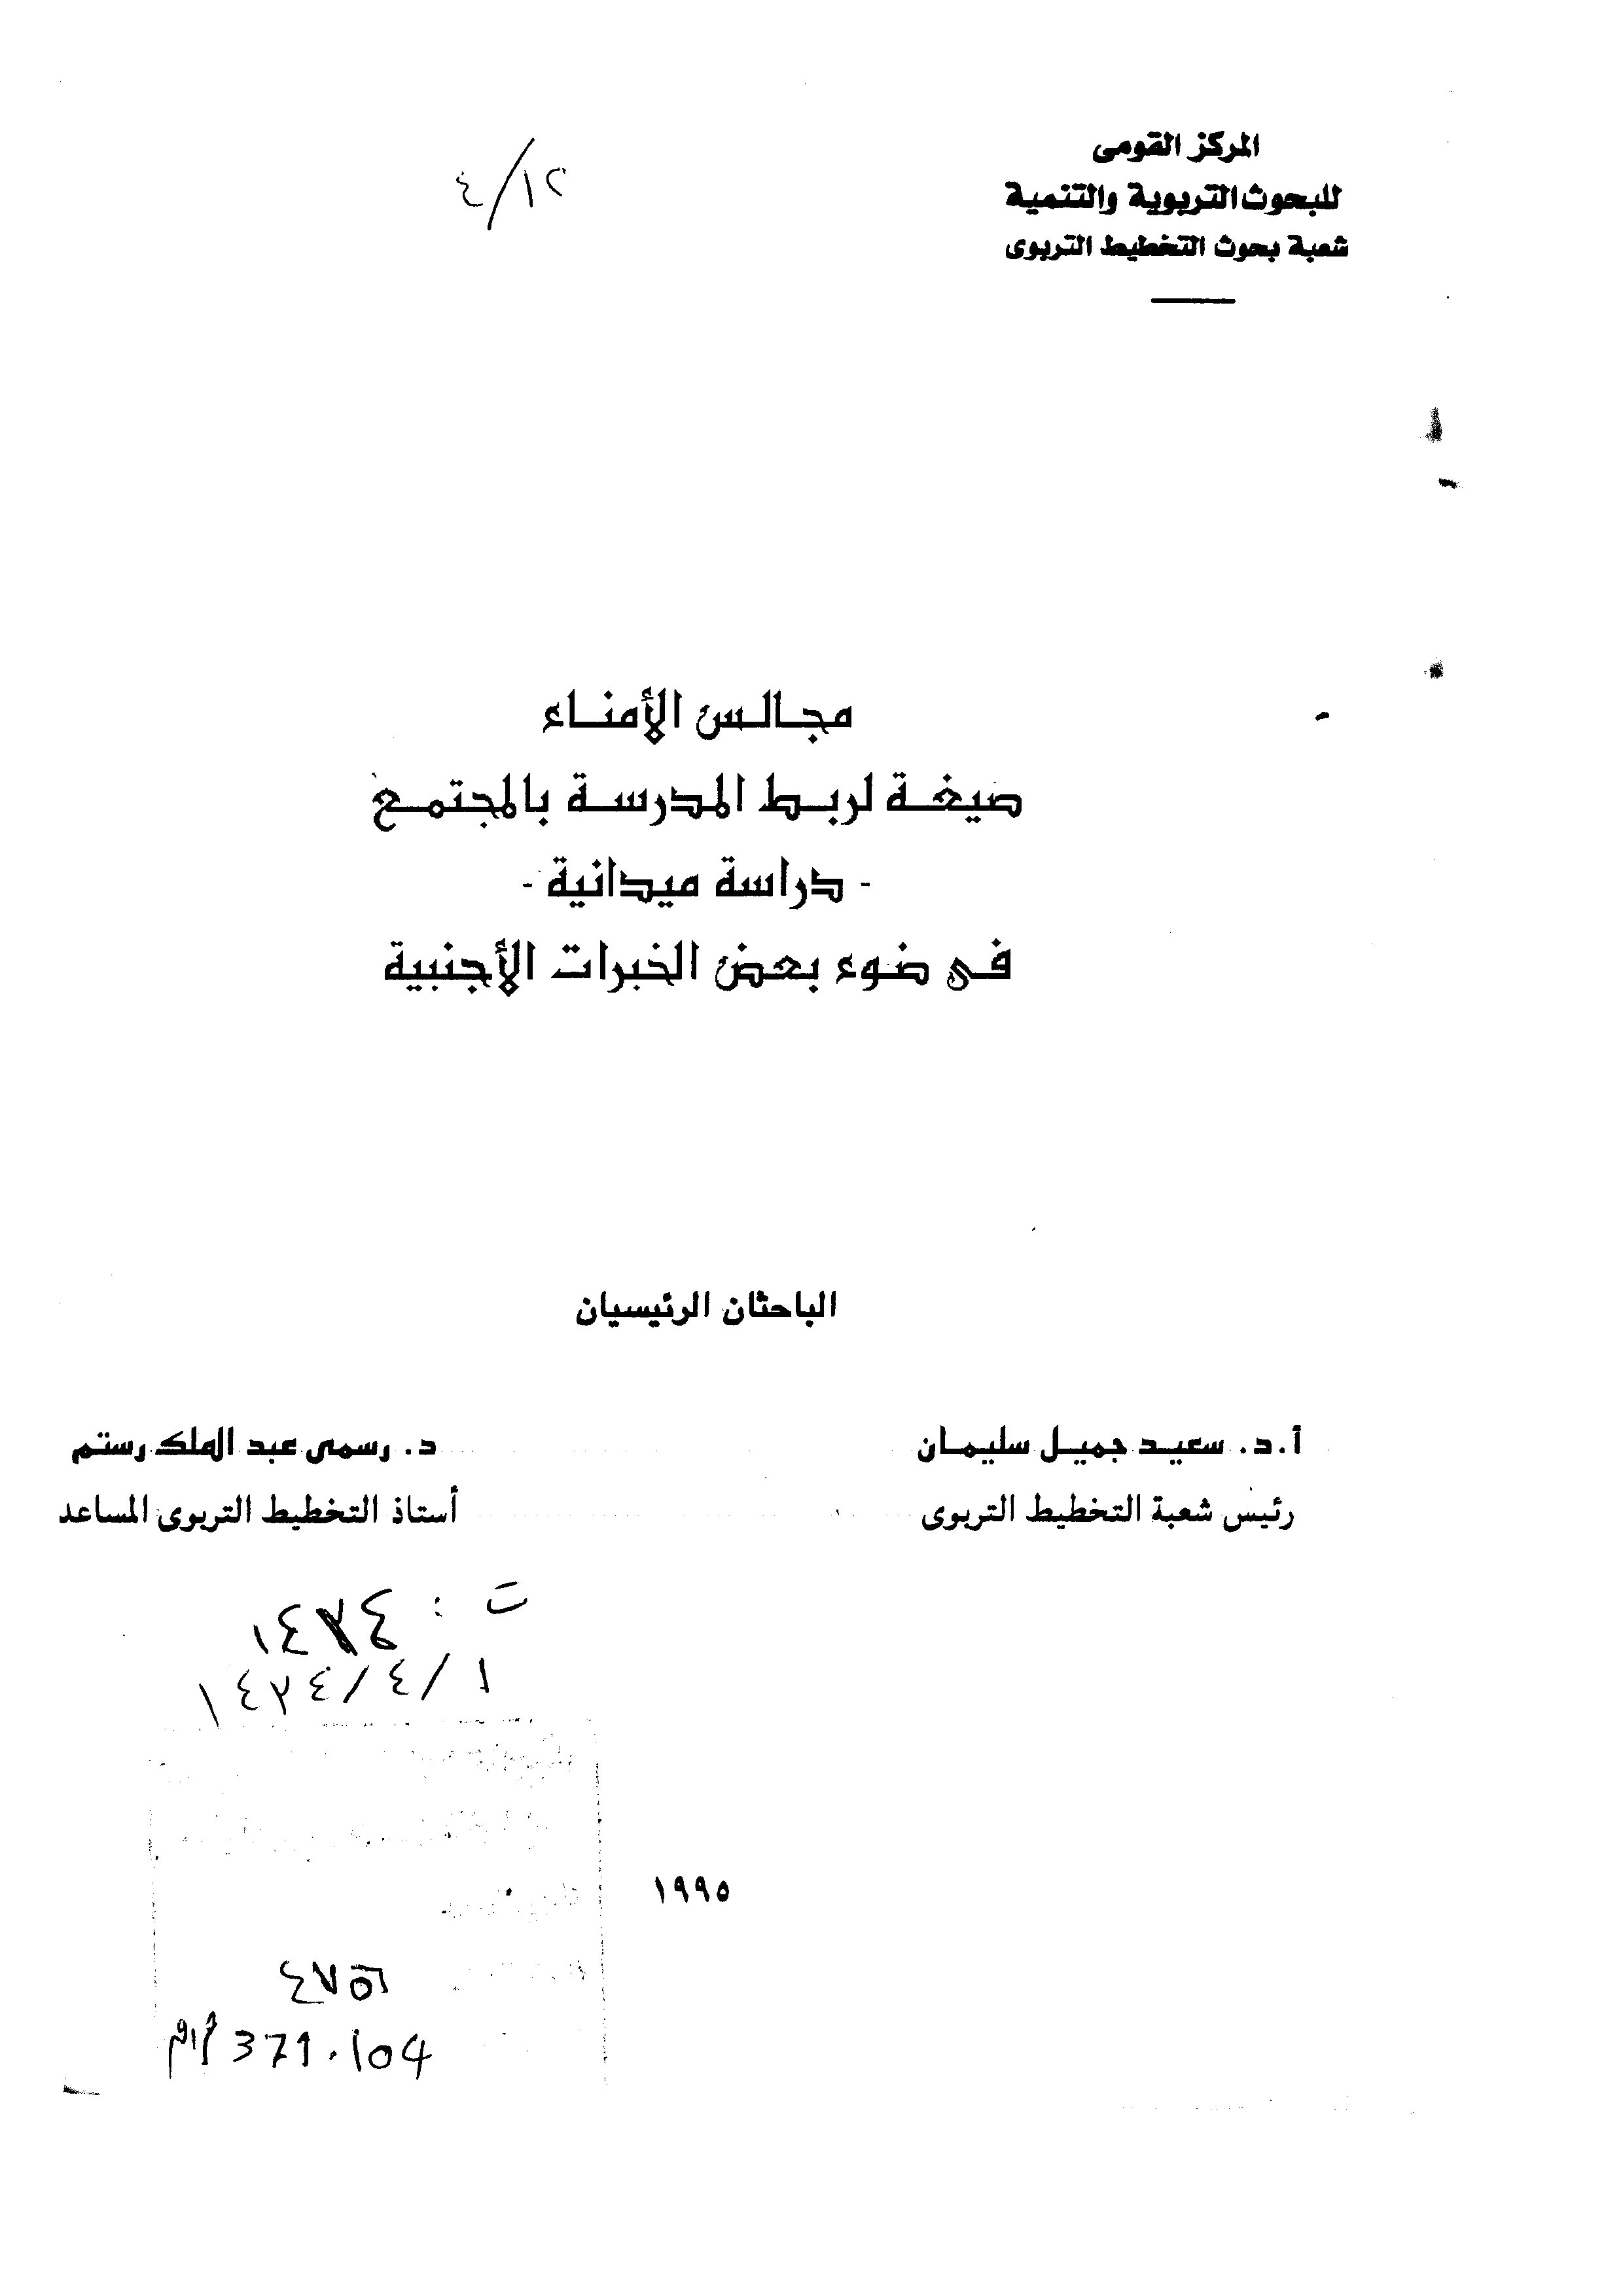 المركز القومى
للبحوث التربوية والتنمية
شعبة بحوث التخطيط التربوى
٤/١٢
مجالس الأمناء
صيغة لربط المدرسة بالمجتمع
- دراسة ميدانية -
فى ضوء بعض الخبرات الأجنبية
الباحثان الرئيسيان
أ.د. سعيد جميل سليمان
رئيس شعبة التخطيط التربوى
د. رسمى عبد الملك رستم
أستاذ التخطيط التربوى المساعد
ت :
١٤٢٤/٤/١
١٩٩٥
371.104